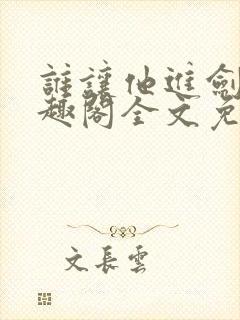 誰讓他進劍
趣閣全文免
文長雲